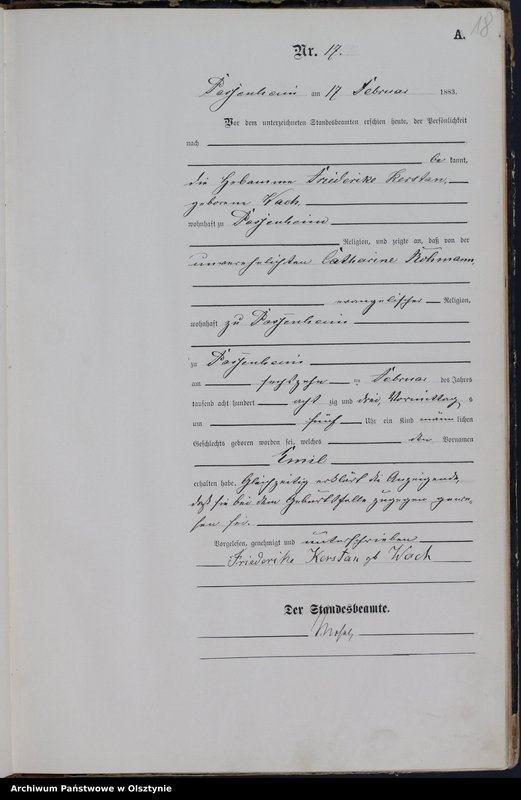 A. 18
Nr. 17.
Passenheim am 17 Februar 1883.
Vor dem unterzeichneten Standesbeamten erschien heute, der Persönlichkeit
nach
be kannt,
die Hebamme Friederike Kerstan,
geborene Wach
wohnhaft zu Passenheim
Religion, und zeigte an, daß von der
unverehelichten Catharine
evangelischer Religion,
wohnhaft zu Passenheim
zu Passenheim
am sechszehn ten Februar des Jahres
tausend acht hundert acht zig und drei, Vormittags
um fünf Uhr ein Kind männ lichen
Geschlechts geboren worden sei, welches den Vornamen
Emil
erhalten habe. Gleichzeitig erklärt die Anzeigende,
daß sie bei dem Geburtsfalle zugegen gewe-
sen sei.
Vorgelesen, genehmigt und unterschrieben
Friederike Kerstan gb Wach
Der Standesbeamte.
Archiwum Państwowe w Olsztynie